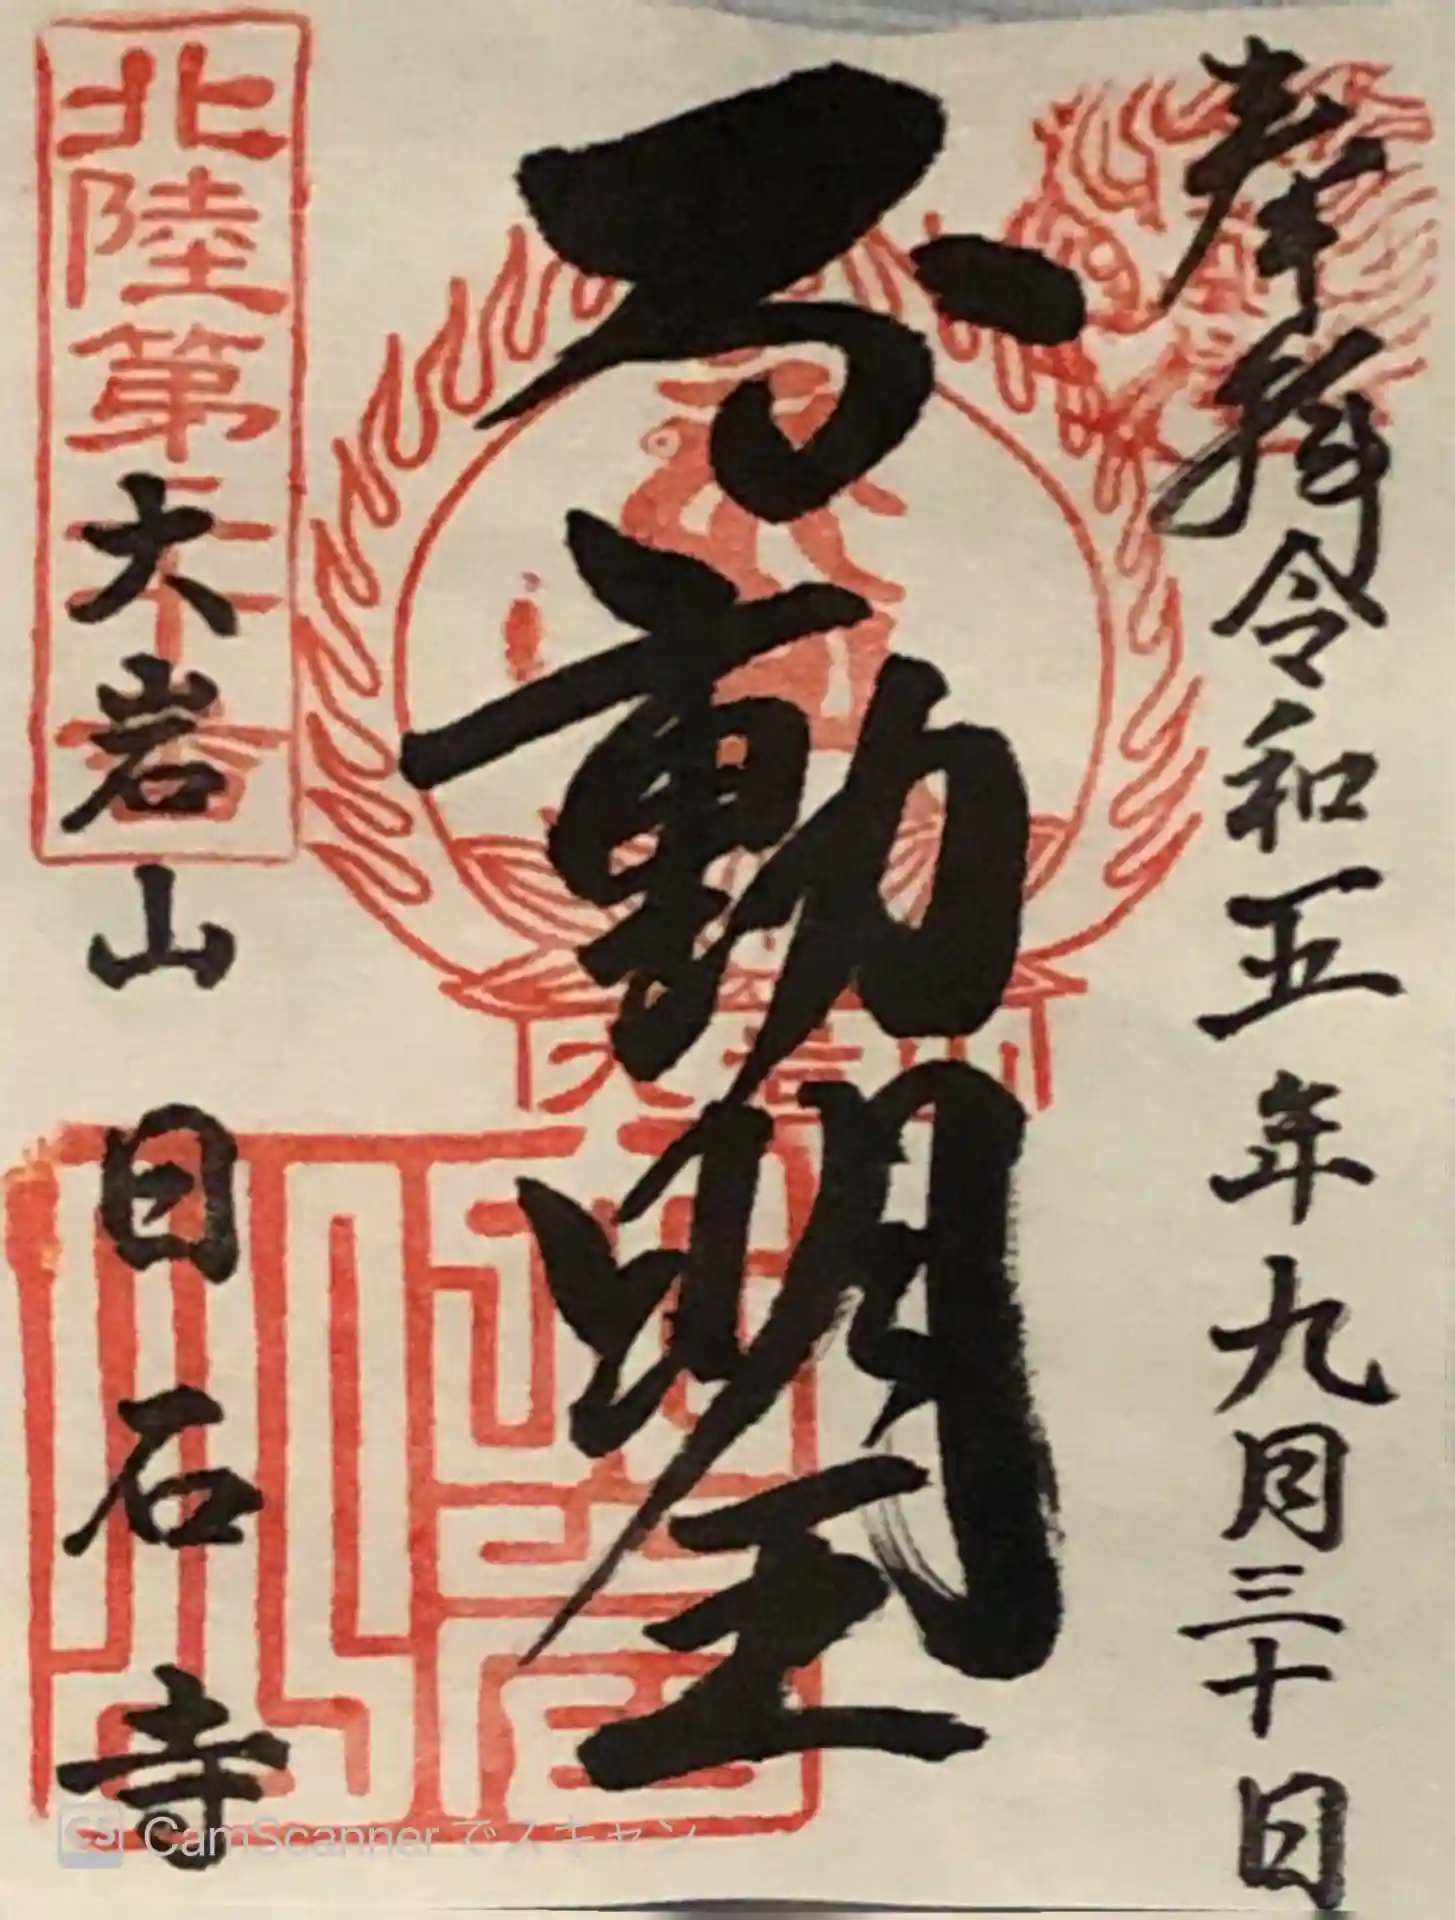 奉拝
令和五年九月三十日
不動明王
大岩山
北陸第二十番
大岩山
日石寺
CamScanner でスキャン